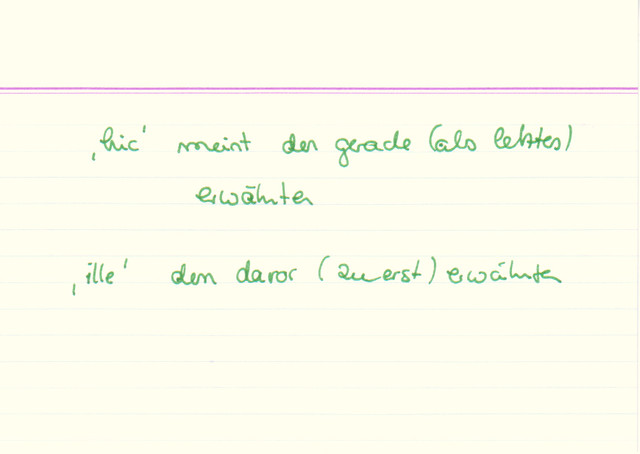 ‚hic' meint den gerade (als letztes)
erwähnten
‚ille' den davor (zuerst) erwähnten